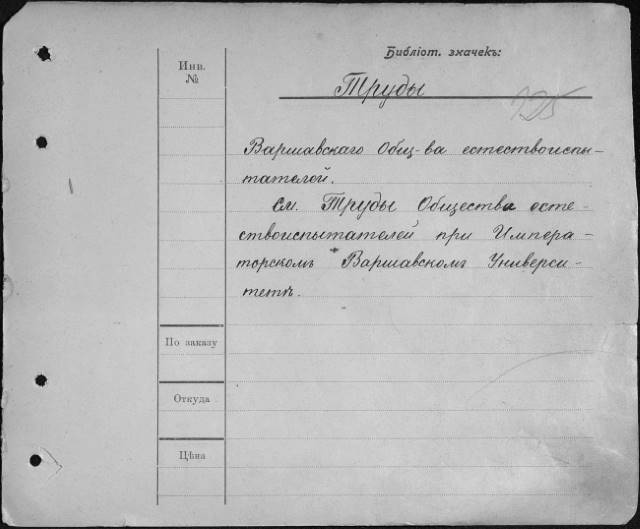 Библiот. значекъ:
Инв.
№
Труды
Варшавскаго Общ-ва естествоиспы-
тателей.
См. Труды Общества есте-
ствоиспытателей при Импера-
торскомъ Варшавскомъ Универси-
тетѣ.
По заказу
Откуда
Цѣна